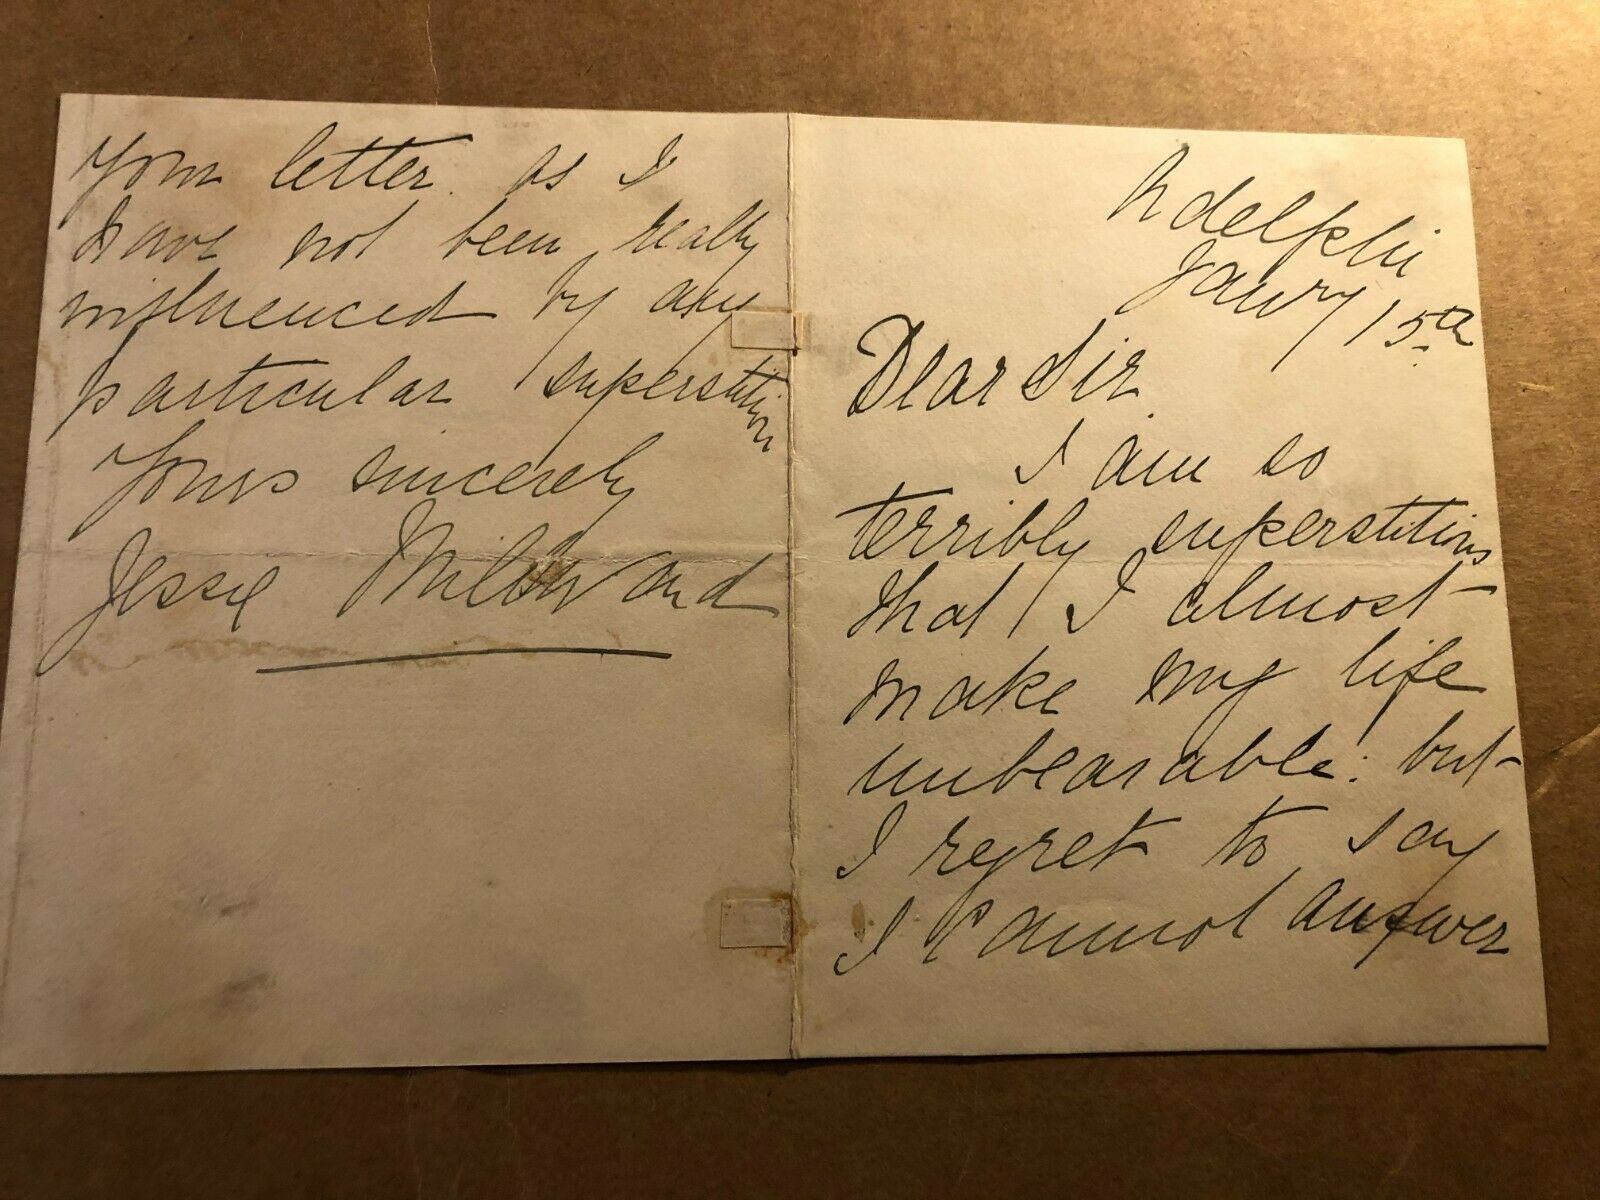 Adelphi
Janry 15th
Dear Sir
I am so
terribly superstitious
that I almost
make my life
unbearable: but
I regret to say
I cannot answer
your letter. as I
have not been really
influenced by any
particular superstition
Yours sincerely
Jessie Millward